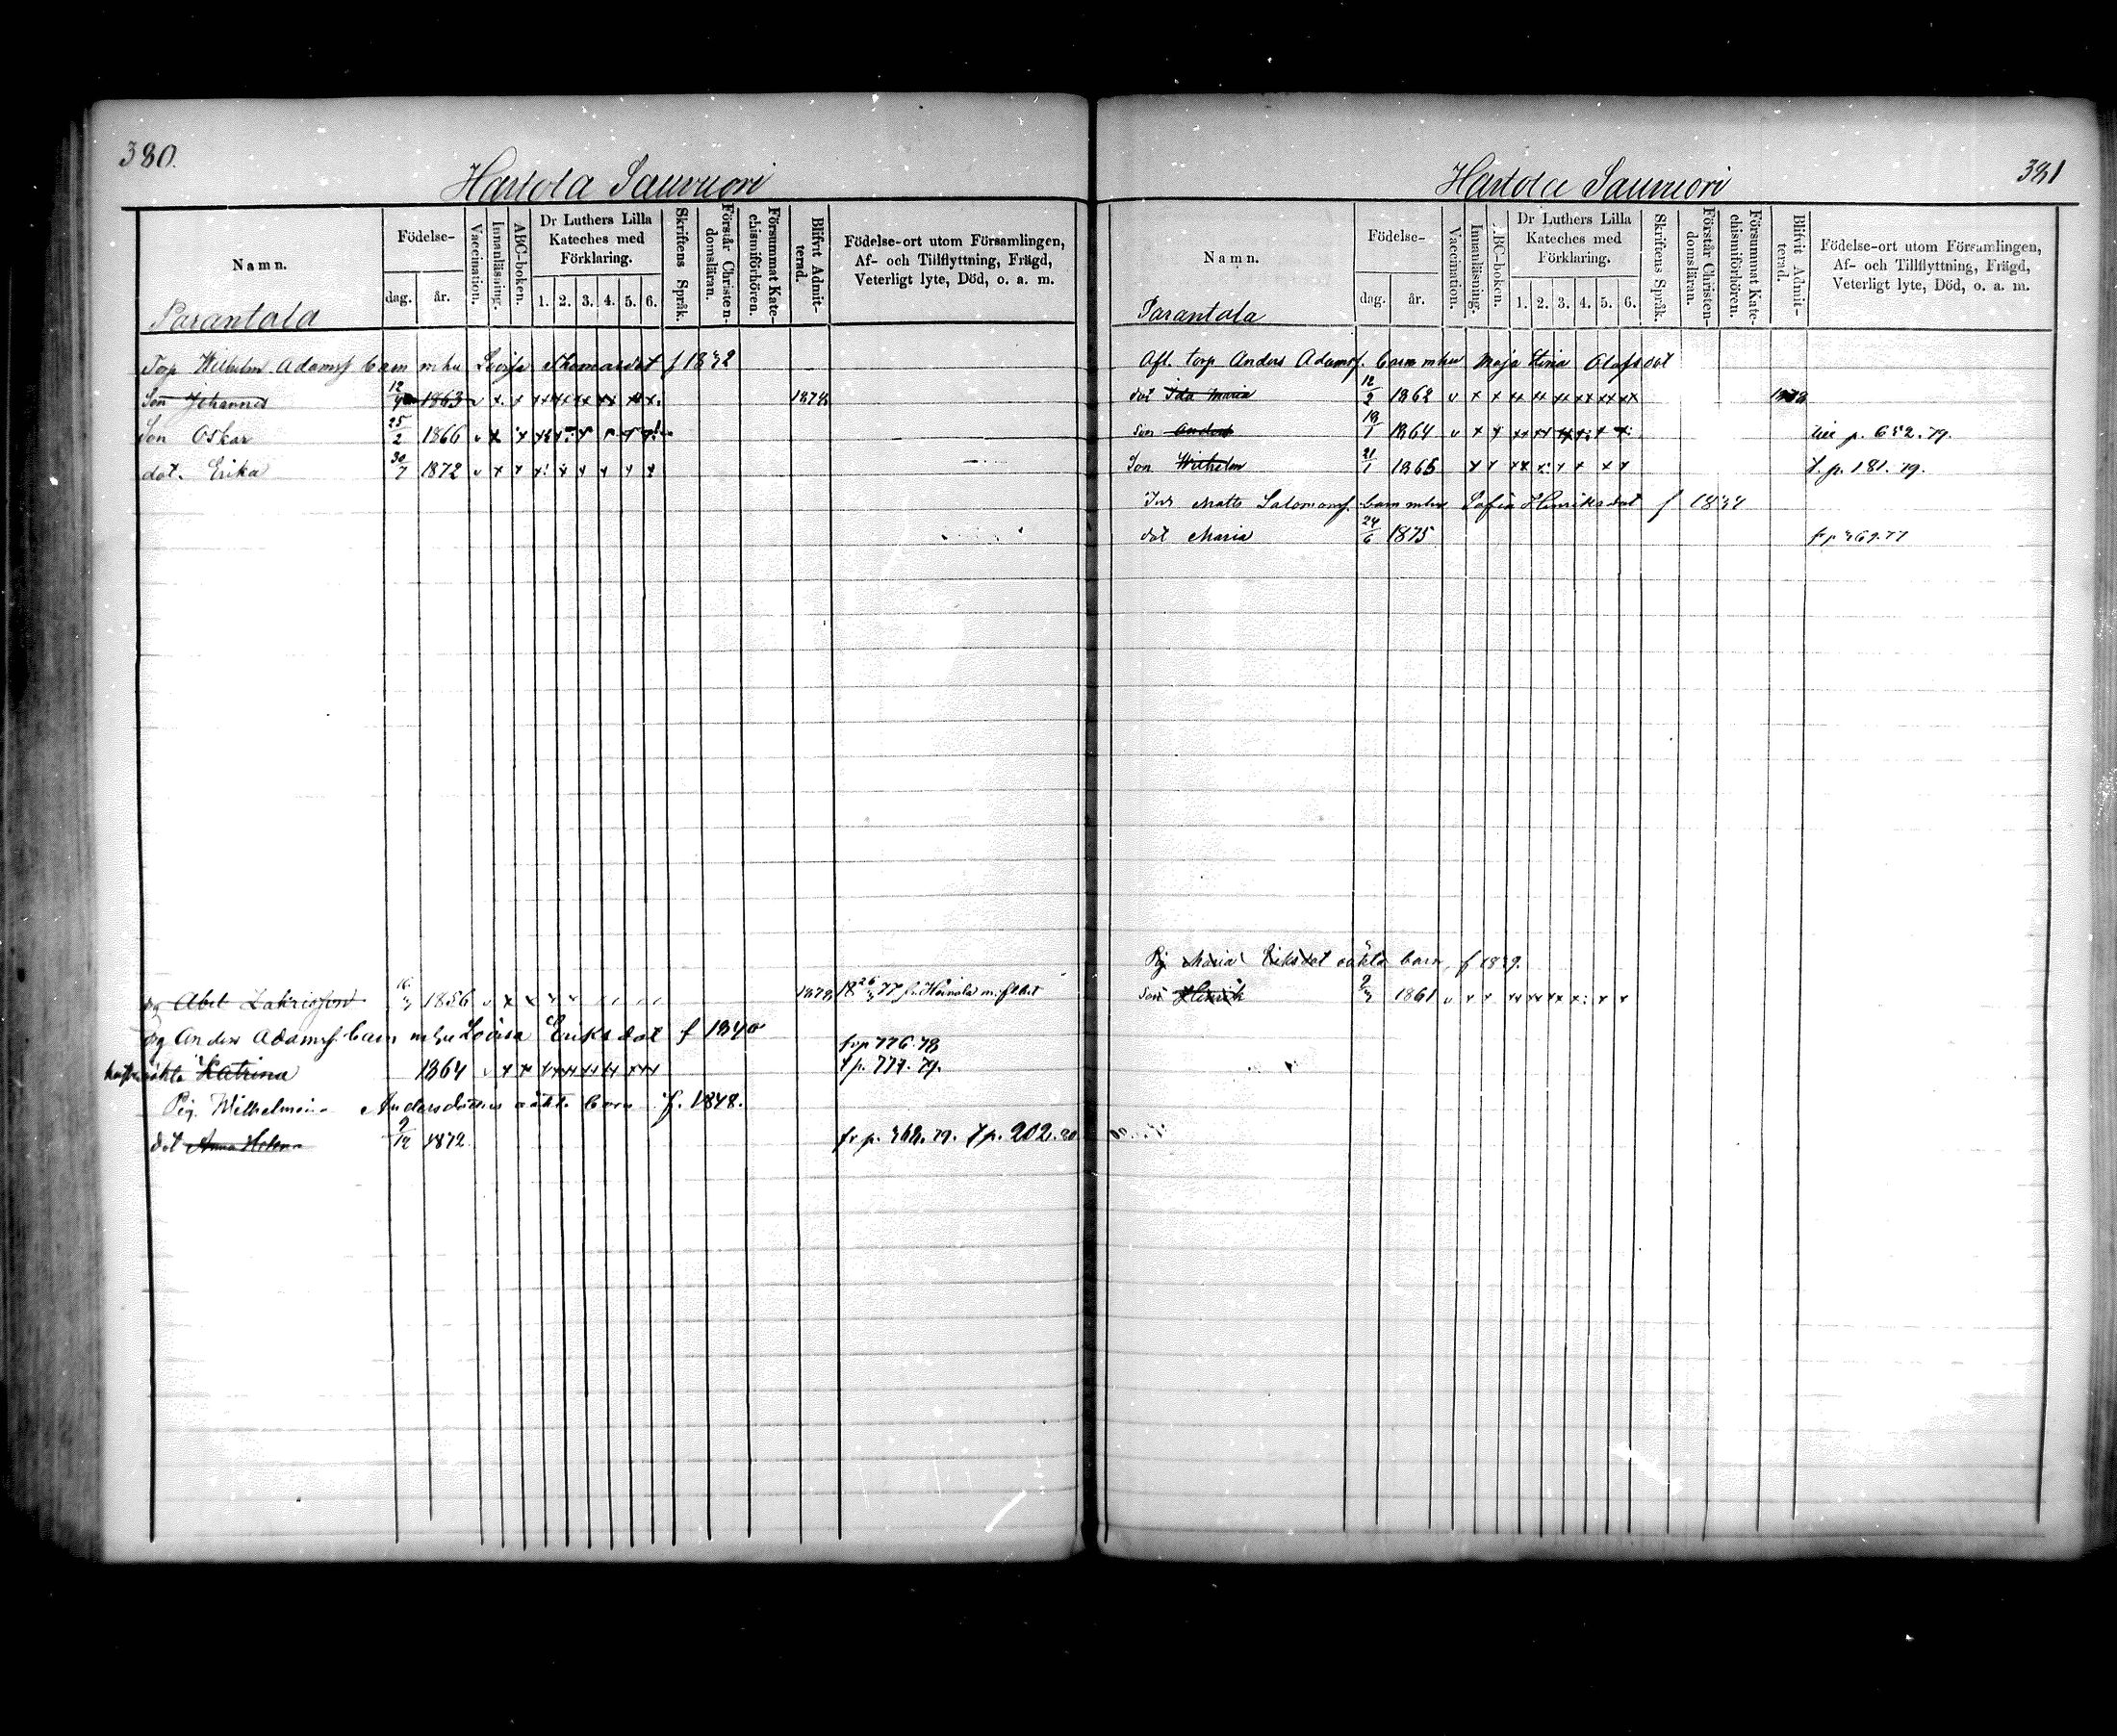 380.
Hartola Sauvuori
Namn.
Födelse-
dag.
år.
Vaccination.
Innanläsning.
ABC-boken.
Dr Luthers Lilla Kateches med Förklaring.
1. 2. 3. 4. 5. 6.
Skriftens Språk.
Förstår Christendomsläran.
Försummat Katechismiförhören.
Blifvit Admitterad.
Födelse-ort utom Församlingen, Af- och Tillflyttning, Frägd, Veterligt lyte, Död, o. a. m.
Parantala
Torp Wilhelm Adamsf barn m hu Lovisa Thomasdot f 1832
Son Johannes 12/4 1863 v x x xx xx xx xx xx x. 1878
Son Oskar 25/2 1866 v x x
dot. Erika 30/7 1872 v x x x: x x x x x
drg Abel Zakriasson 16/3 1856 v x x 1873 18 26/3 77 fr. Heinola
drg Anders Adamsf. barn m hu Lovisa Eriksdot f 1840
fr p 776.78
oäkta Katrina 1864 v x x xx xx xx xx xx x t p. 777. 79.
Pig. Wilhelmina Andersdotters oäkta barn f. 1848.
dot Anna Helena 9/12 1872 fr p. 368. 79. t p. 202. 80
Hartola Sauvuori
381
Namn.
Födelse-
dag.
år.
Vaccination.
Innanläsning.
ABC-boken.
Dr Luthers Lilla Kateches med Förklaring.
1. 2. 3. 4. 5. 6.
Skriftens Språk.
Förstår Christendomsläran.
Försummat Katechismiförhören.
Blifvit Admitterad.
Födelse-ort utom Församlingen, Af- och Tillflyttning, Frägd, Veterligt lyte, Död, o. a. m.
Parantala
Afl. torp Anders Adamsf. barn m hu Maja Stina Olofsdot
dot Ida Maria 12/2 1862 v x x xx xx xx xx xx xx 1878
son Anders 18/1 1864 v x x xx xx xx x: x x: p. 652. 79.
Son Wilhelm 21/1 1865 x x xx x: x x x x t. p. 181. 79.
Inh Matts Salomonsf. barn m hu Sofia Henriksdot f 1834
dot Maria 24/6 1875 fr p 369. 77
Pig Maria Eriksdot oäkta barn f 1839.
son Henrik 9/3 1861 v x x xx xx xx x: x x